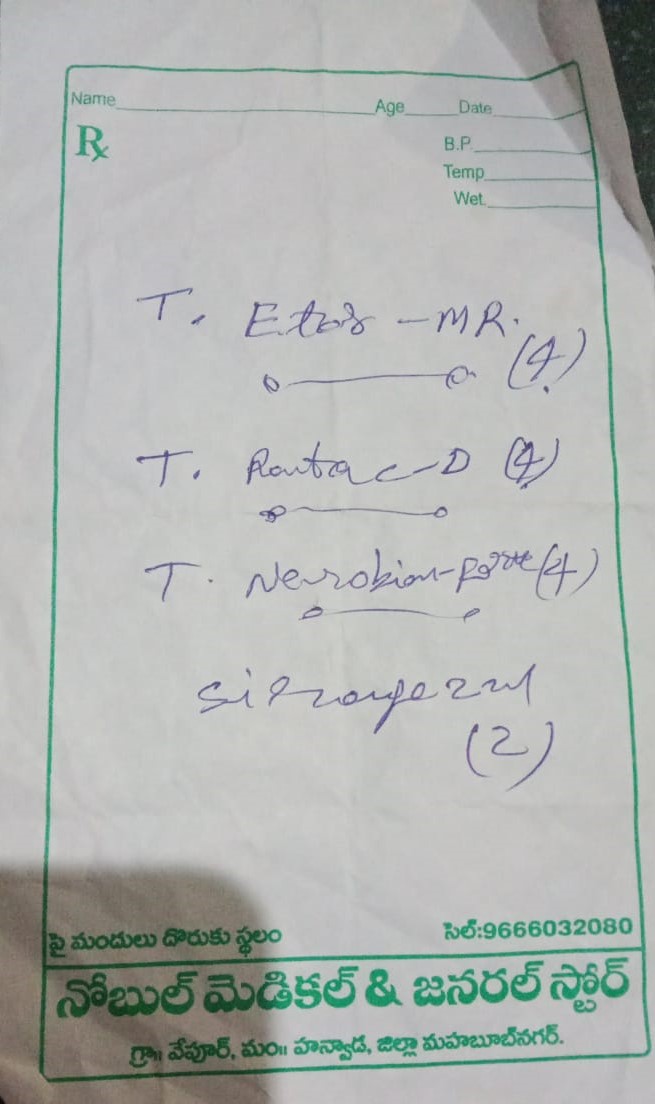 Name Age Date
Rx
B.P.
Temp
Wet.
T. Etos - MR.
(4)
T. Rantac-D (4)
T. Neurobion-Forte (4)
(2)
పై మందులు దొరుకు స్థలం సెల్:9666032080
నోబుల్ మెడికల్ & జనరల్ స్టోర్
గ్రా॥ వేపూర్, మం॥ హన్వాడ, జిల్లా మహబూబ్‌నగర్.